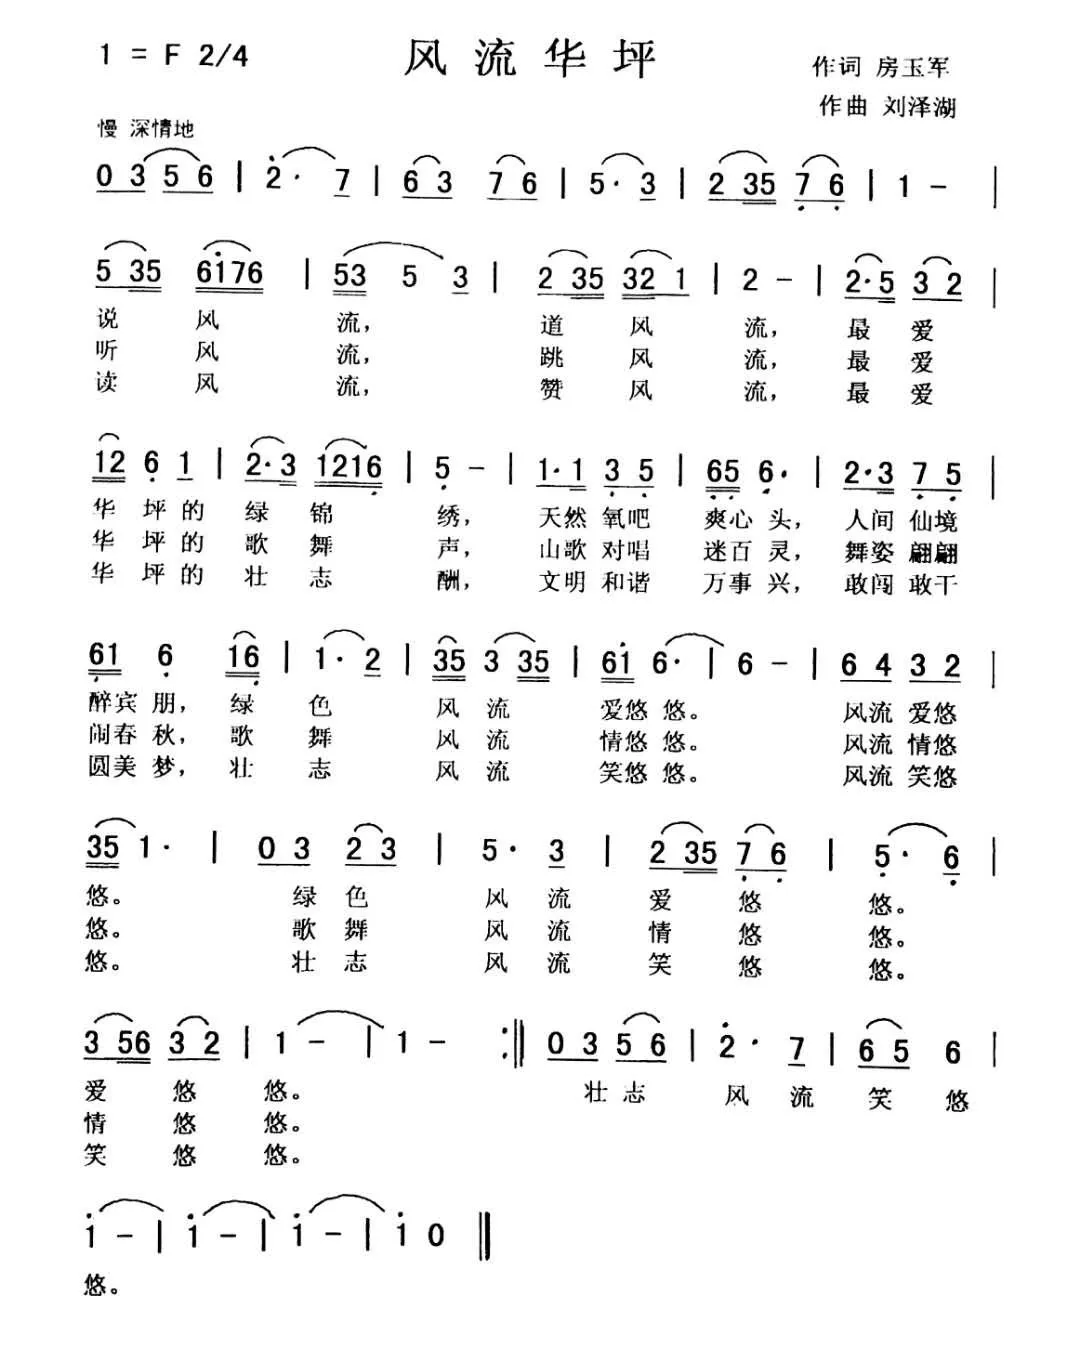 1 = F 2/4 风流华坪 作词 房玉军
作曲 刘泽湖
慢 深情地
0 3 5 6 | 2· 7 | 6 3 7 6 | 5· 3 | 2 35 7 6 | 1 - |
5 35 6176 | 53 5 3 | 2 35 32 1 | 2 - | 2·5 3 2 |
说 风 流, 道 风 流, 最 爱
听 风 流, 跳 风 流, 最 爱
读 风 流, 赞 风 流, 最 爱
12 6 1 | 2·3 1216 | 5 - | 1·1 3 5 | 65 6· | 2·3 7 5 |
华 坪 的 绿 锦 绣, 天然 氧吧 爽心 头, 人间 仙境
华 坪 的 歌 舞 声, 山歌 对唱 迷百 灵, 舞姿 翩翩
华 坪 的 壮 志 酬, 文明 和谐 万事 兴, 敢闯 敢干
61 6 16 | 1· 2 | 35 3 35 | 61 6· | 6 - | 6 4 3 2 |
醉宾 朋, 绿 色 风 流 爱悠 悠。 风流 爱悠
闹春 秋, 歌 舞 风 流 情悠 悠。 风流 情悠
圆美 梦, 壮 志 风 流 笑悠 悠。 风流 笑悠
35 1· | 0 3 2 3 | 5· 3 | 2 35 7 6 | 5· 6 |
悠。 绿 色 风 流 爱 悠 悠。
悠。 歌 舞 风 流 情 悠 悠。
悠。 壮 志 风 流 笑 悠 悠。
3 56 3 2 | 1 - | 1 - :|| 0 3 5 6 | 2· 7 | 6 5 6 |
爱 悠 悠。 壮 志 风 流 笑 悠
情 悠 悠。
笑 悠 悠。
1 - | 1 - | 1 - | 1 0 ||
悠。